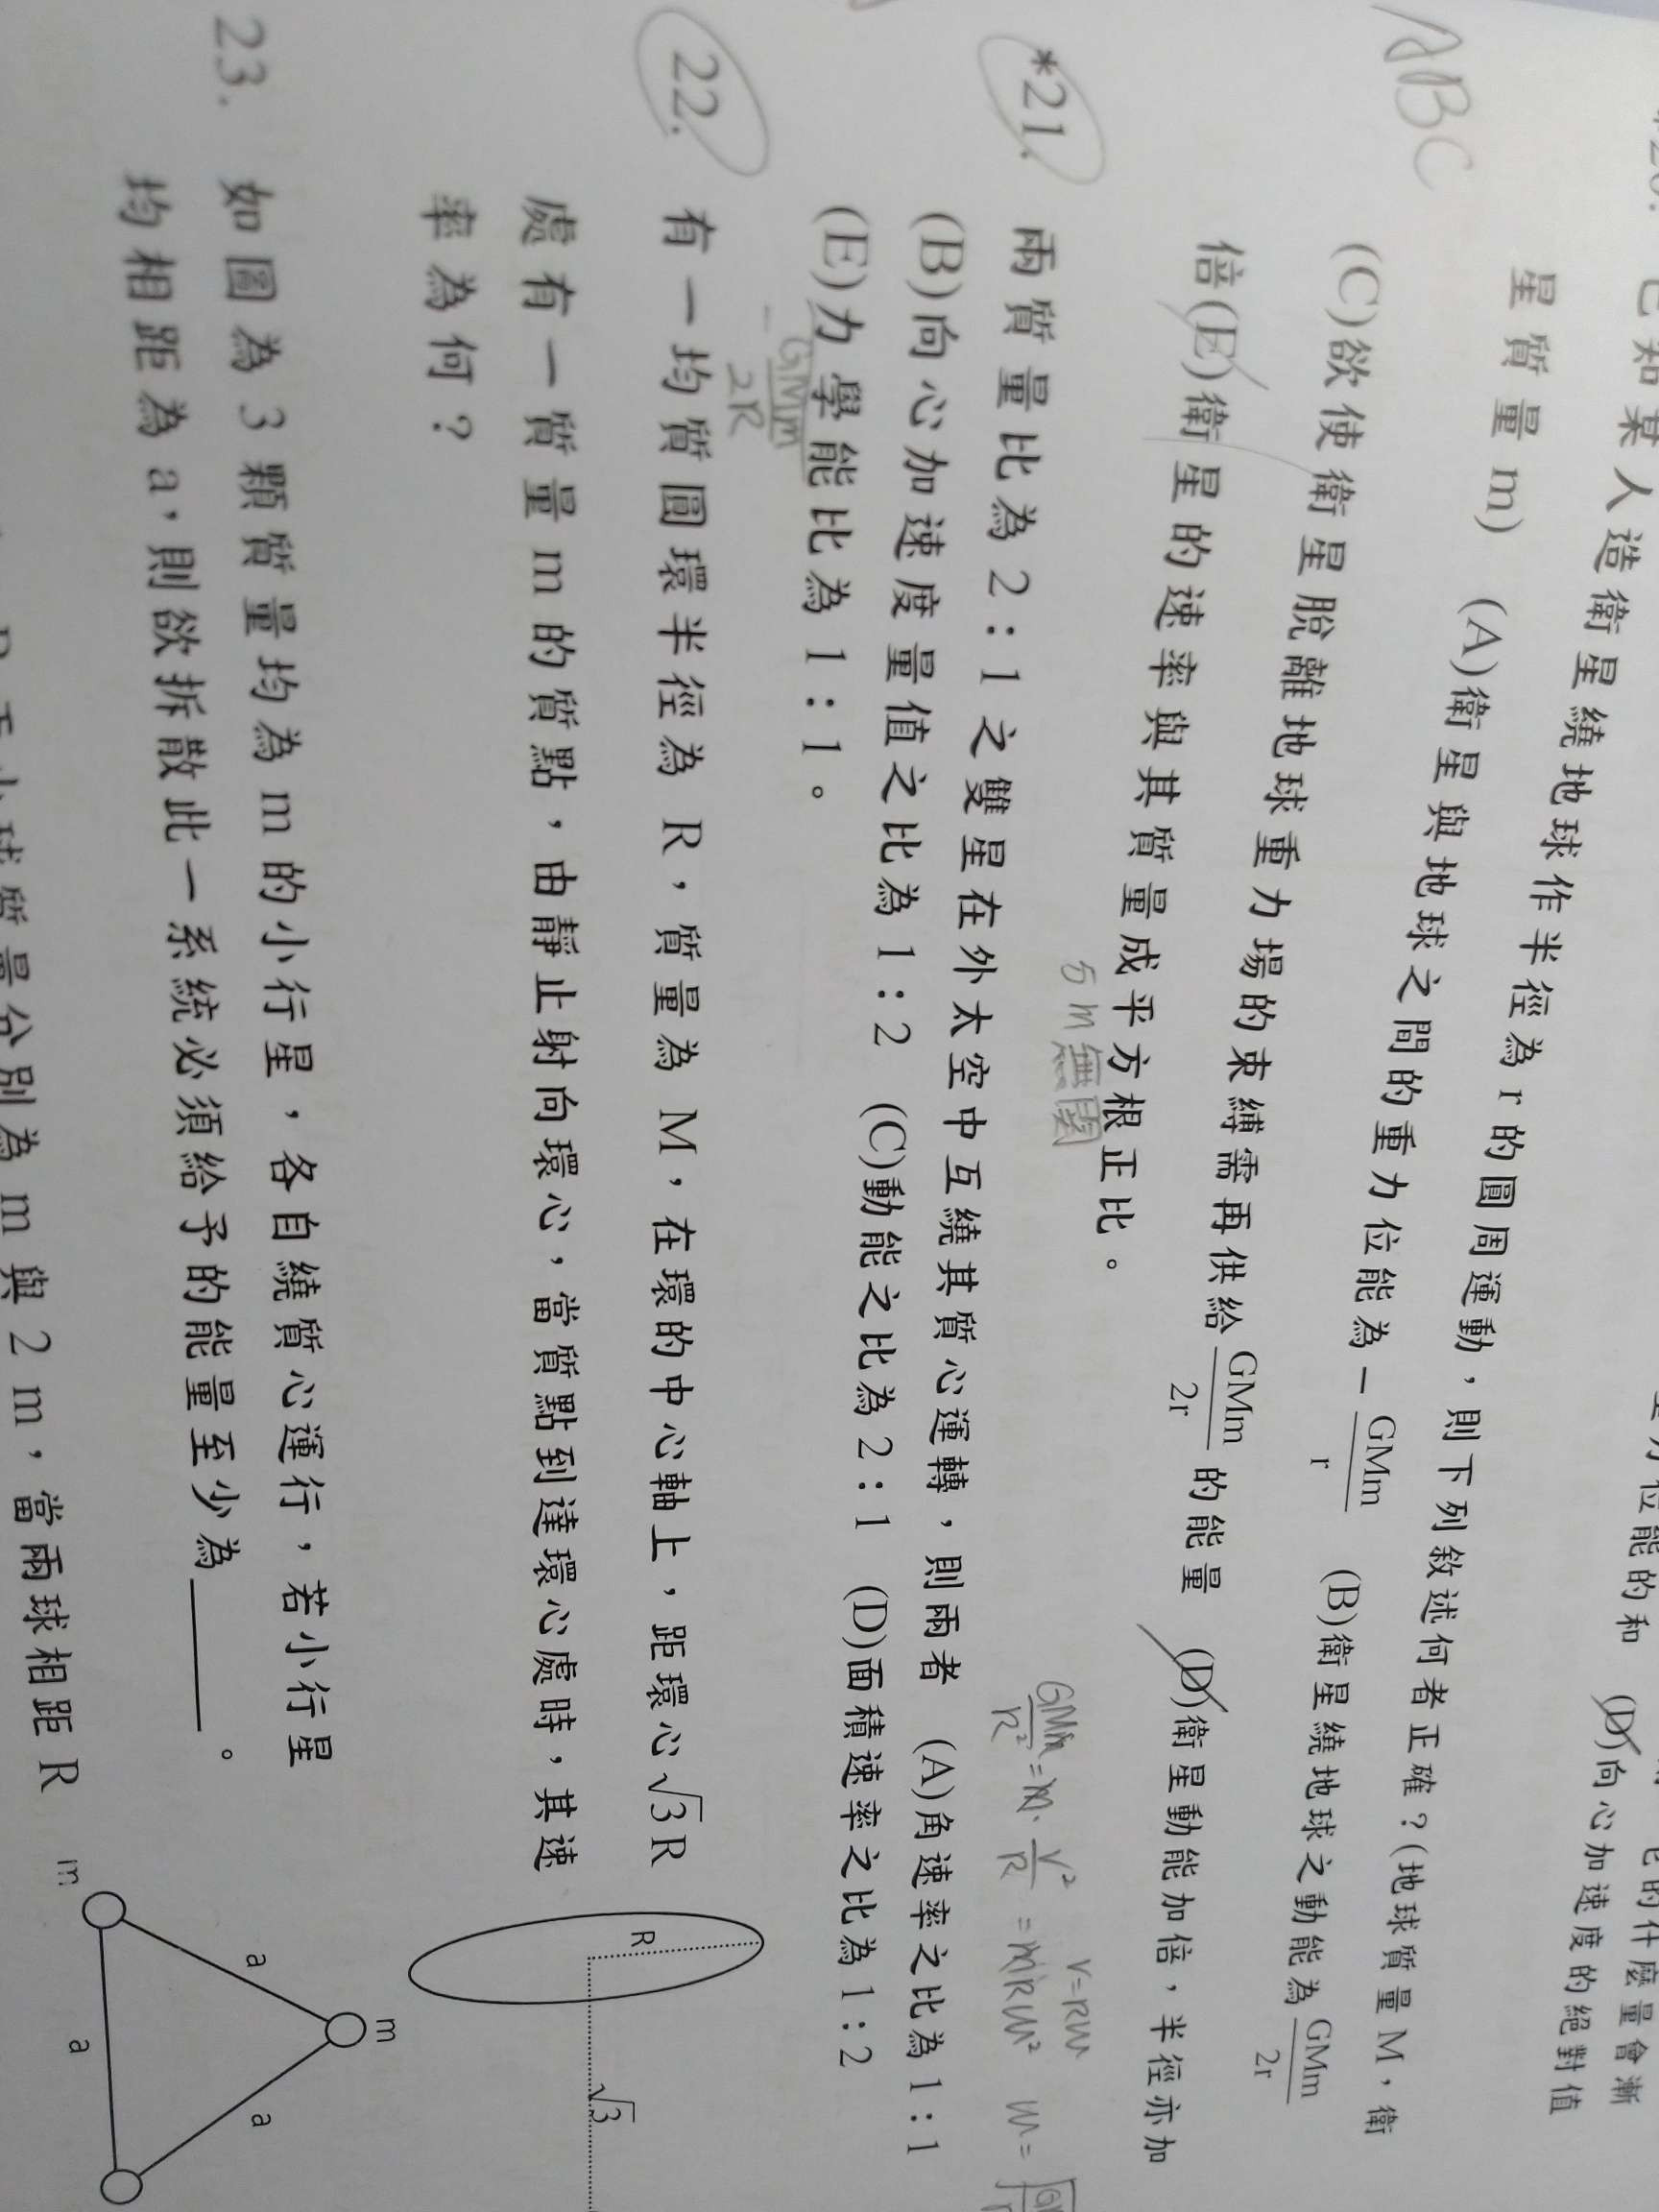 已知某人造衛星繞地球作半徑為 r 的圓周運動，則下列敘述何者正確？(地球質量 M，衛
星質量 m) (A)衛星與地球之間的重力位能為 −GMm/r (B)衛星繞地球之動能為 GMm/2r
(C)欲使衛星脫離地球重力場的束縛需再供給 GMm/2r 的能量 (D)衛星動能加倍，半徑亦加
倍 (E)衛星的速率與其質量成平方根正比。
ABC
(D)向心加速度的絕對值
位能的和
的什麼量會漸
與 m 無關
GMm/R² = m·v²/R = mRω²
v=Rω
*21. 兩質量比為 2：1 之雙星在外太空中互繞其質心運轉，則兩者 (A)角速率之比為 1：1
(B)向心加速度量值之比為 1：2 (C)動能之比為 2：1 (D)面積速率之比為 1：2
(E)力學能比為 1：1。
−GMm/2R
22. 有一均質圓環半徑為 R，質量為 M，在環的中心軸上，距環心 √3R
處有一質量 m 的質點，由靜止射向環心，當質點到達環心處時，其速
率為何？
R
√3
23. 如圖為 3 顆質量均為 m 的小行星，各自繞質心運行，若小行星
均相距為 a，則欲拆散此一系統必須給予的能量至少為______。
m
a
a
m
a
小球質量分別為 m 與 2 m，當兩球相距 R